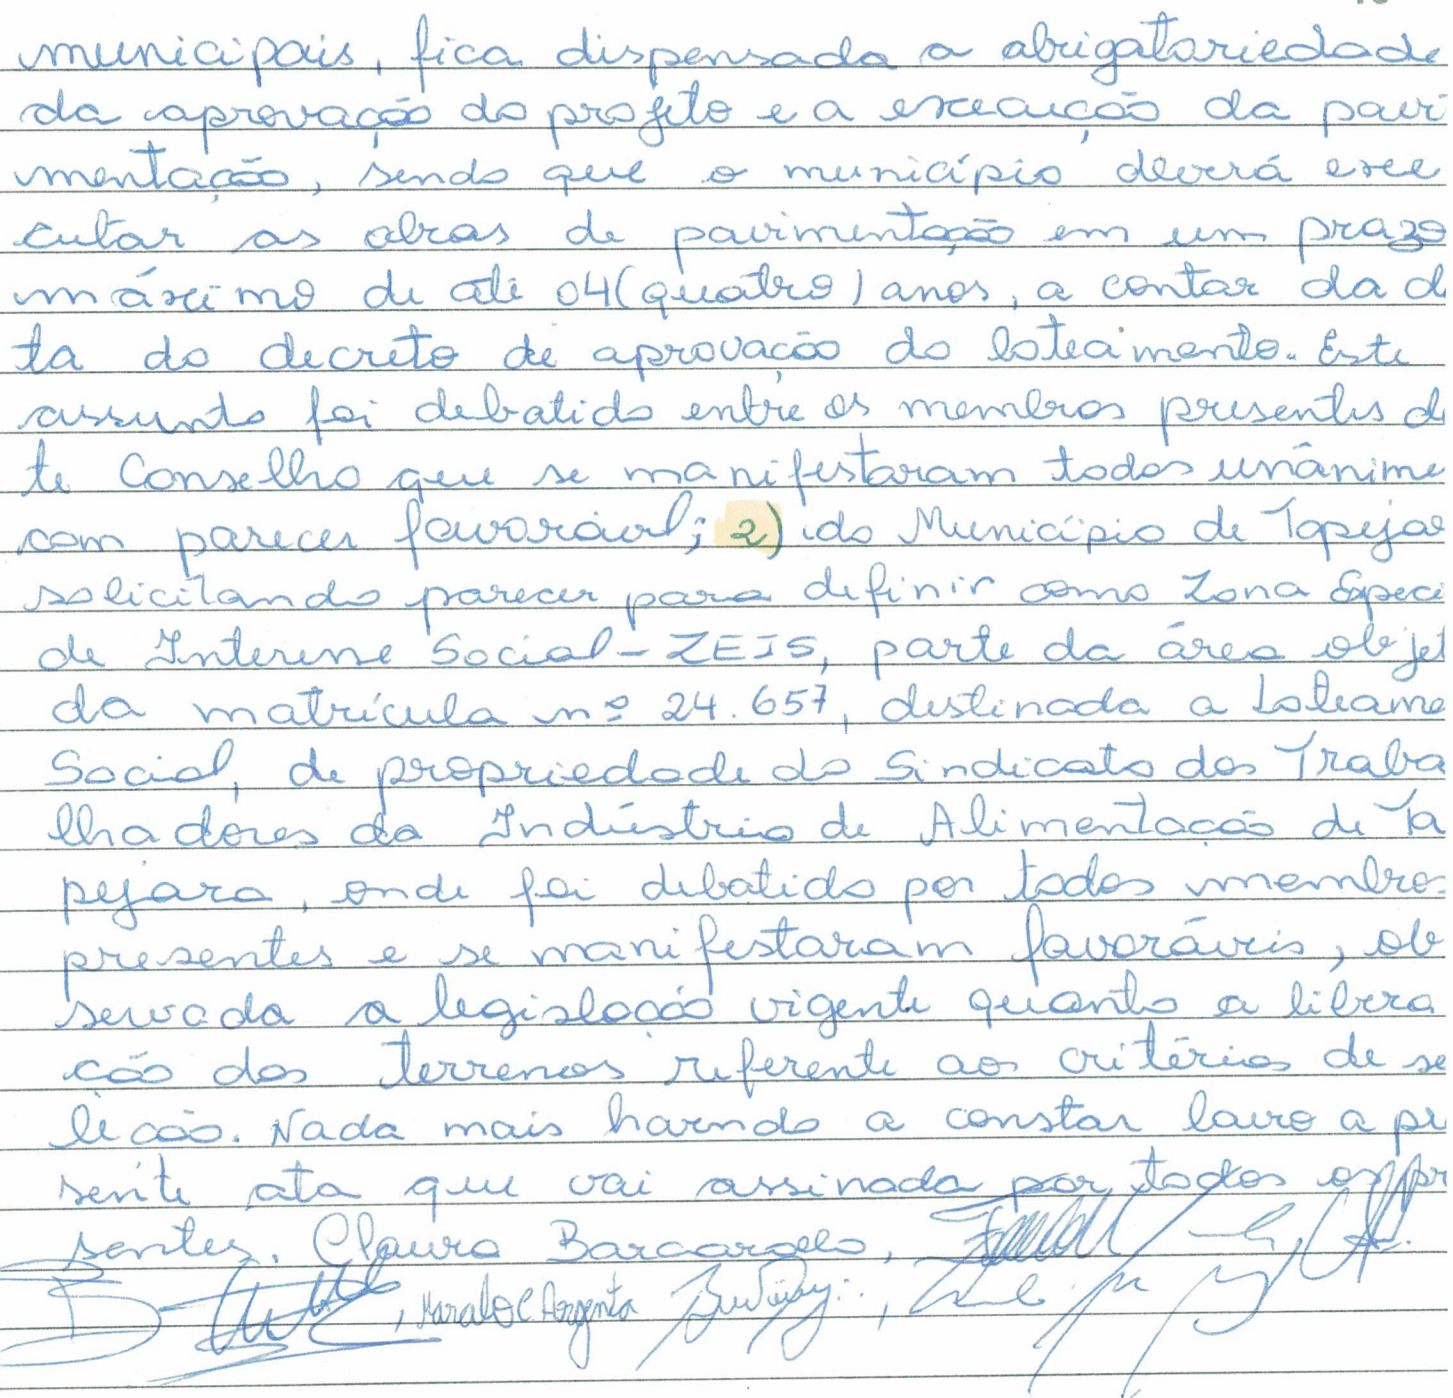 municipais, fica dispensada a obrigatoriedade
da aprovação do projeto e a execução da pavi
mentação, sendo que o município deverá exe
cutar as obras de pavimentação em um prazo
máximo de até 04 (quatro) anos, a contar da d
ta do decreto de aprovação do loteamento. Este
assunto foi debatido entre os membros presentes d
te Conselho que se manifestaram todos unânime
com parecer favorável; 2) do Município de Tapejar
solicitando parecer para definir como Zona Especi
de Interesse Social - ZEIS, parte da área objet
da matrícula nº 24.657, destinada a Loteame
Social, de propriedade do Sindicato dos Traba
lhadores da Indústria de Alimentação de Ta
pejara, onde foi debatido por todos membros
presentes e se manifestaram favoráveis, ob
servada a legislação vigente quanto a libera
ção dos terrenos referente aos critérios de se
leção. Nada mais havendo a constar lavro a pr
sente ata que vai assinada por todos os pr
sentes.
, Argenta